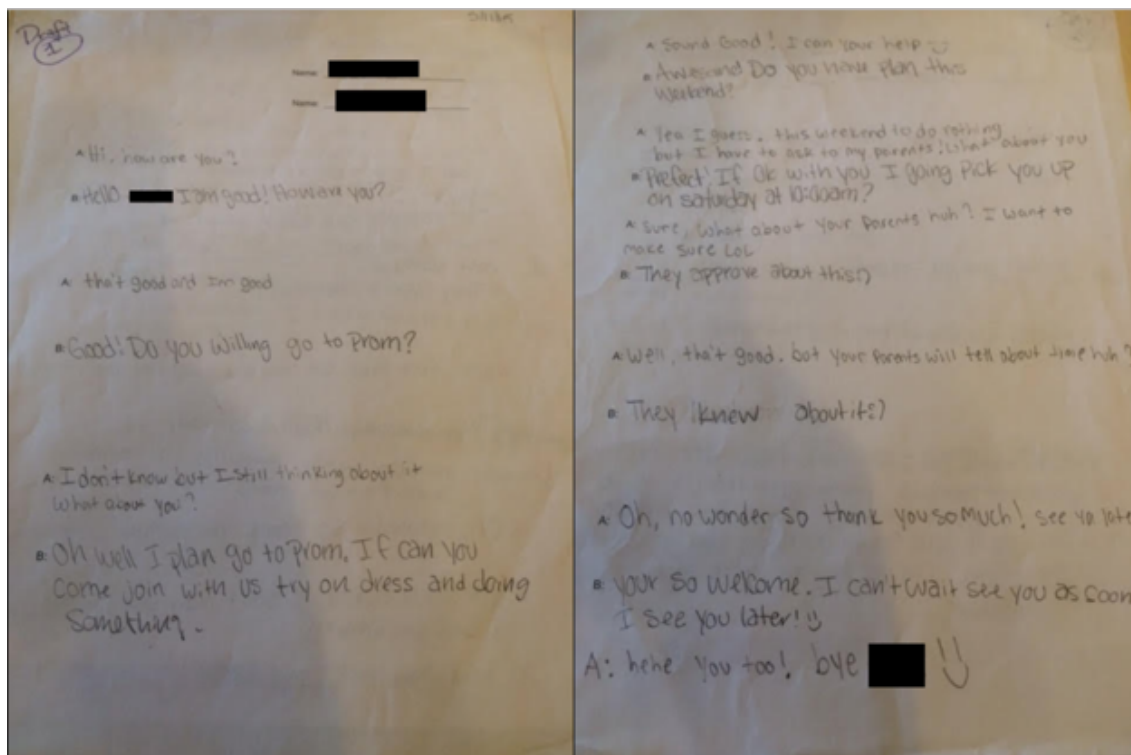 Draft
1
Name:
Name:
A: Hi, how are you?
B: Hello I am good! How are you?
A: tha't good and I'm good
B: Good! Do you willing go to Prom?
A: I don't know but I still thinking about it
what about you?
B: Oh well I plan go to Prom. If can you
come join with us try on dress and doing
Something.
A: Sound Good! I can your help
B: Awesand Do you have plan this
weekend?
A: Yea I guess. this weekend to do nothing
but I have to ask to my parents! What about you
B: Prefect! If Ok with you I going Pick you up
on saturday at 10:00am?
A: Sure, What about your parents huh? I want to
make sure LoL
B: They approve about this:)
A: Well, tha't good. but your parents will tell about time huh?
B: They knew about it:)
A: Oh, no wonder so thank you so much! see ya late
B: Your so welcome. I can't wait see you as soon
I see you later!
A: hehe you too! bye